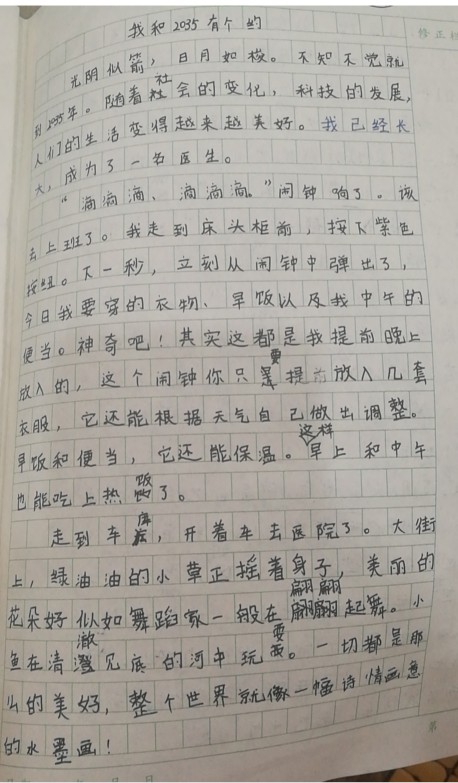 我和2035有个约
光阴似箭，日月如梭。不知不觉就
到2035年。随着社会的变化，科技的发展，
人们的生活变得越来越美好。我已经长
大，成为了一名医生。
“滴滴滴、滴滴滴。”闹钟响了。该
去上班了。我走到床头柜前，按下紫色
按钮。下一秒，立刻从闹钟中弹出了，
今日我要穿的衣物、早饭以及我中午的
便当。神奇吧！其实这都是我提前晚上
放入的，这个闹钟你只要提前放入几套
衣服，它还能根据天气自己做出调整。
早饭和便当，它还能保温。这样早上和中午
也能吃上热饭了。
走到车库，开着车去医院了。大街
上，绿油油的小草正摇着身子，美丽的
花朵好似如舞蹈家一般在翩翩起舞。小
鱼在清澈见底的河中玩耍。一切都是那
么的美好，整个世界就像一幅诗情画意
的水墨画！
修正
第